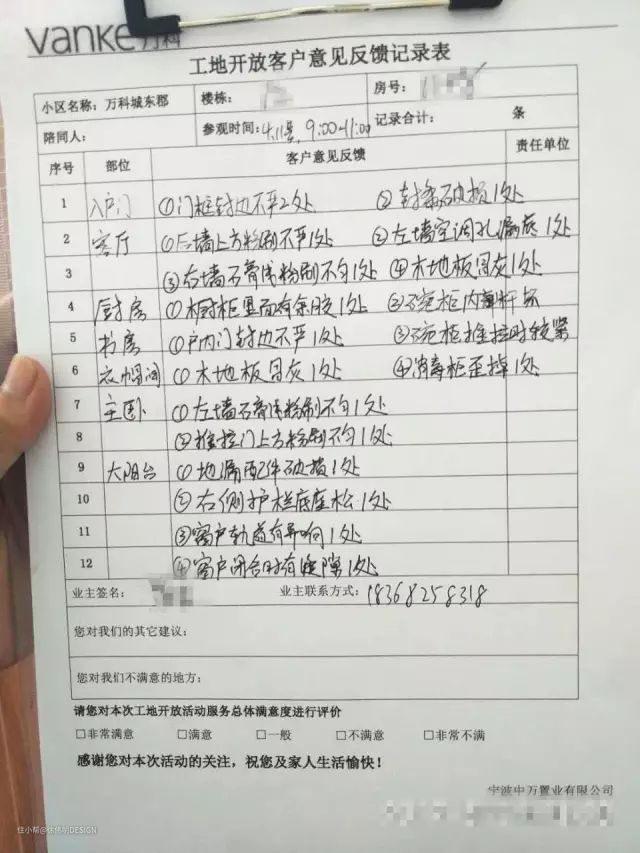 vanke 万科
工地开放客户意见反馈记录表
小区名称：万科城东郡 楼栋： 房号：
陪同人： 参观时间：4.11号，9:00-11:00 记录合计： 条
序号 部位 客户意见反馈 责任单位
1 入户门 ①门框封边不严2处 ②封条破损1处
2 客厅 ①后墙上方粉刷不平1处 ②左墙空调孔漏灰1处
3 ③右墙石膏线粉刷不匀1处 ④木地板冒灰1处
4 厨房 ①橱柜里面有余胶1处 ②碗柜内 杆坏
5 书房 ①户内门封边不严1处 ③碗柜推拉时较紧
6 衣帽间 ①木地板冒灰1处 ④消毒柜歪掉1处
7 主卧 ①左墙石膏线粉刷不匀1处
8 ②推拉门上方粉刷不匀1处
9 大阳台 ①地漏配件破损1处
10 ②右侧护栏底座松1处
11 ③窗户轨道有异响1处
12 ④窗户闭合时有缝隙1处
业主签名： 业主联系方式：18368258318
您对我们的其它建议：
您对我们不满意的地方：
请您对本次工地开放活动服务总体满意度进行评价
□非常满意 □满意 □一般 □不满意 □非常不满
感谢您对本次活动的关注，祝您及家人生活愉快！
宁波中万置业有限公司
住小帮@ DESIGN